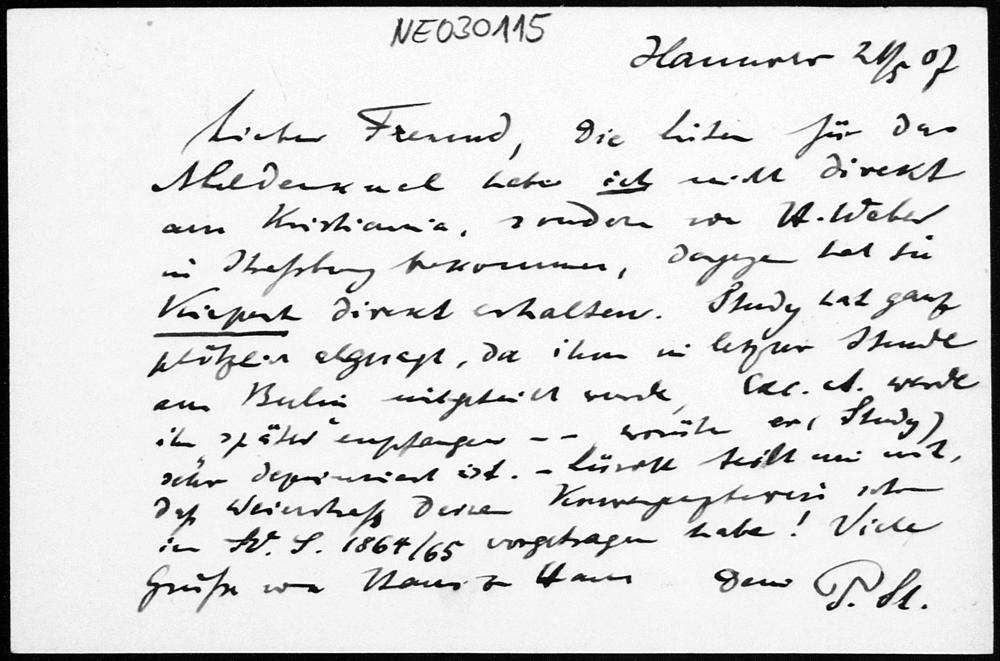 NE030115
Hannover 21/5 07
Lieber Freund, Die Listen für das
Abeldenkmal habe ich nicht direkt
aus Kristiania, sondern von H. Weber
in Straßburg bekommen, dagegen hat sie
Kiepert direkt erhalten. Study hat ganz
plötzlich abgesagt, da ihm in letzter Stunde
aus Berlin mitgeteilt wurde, Exc. A. werde
ihn "später" empfangen -- worüber er (Study)
sehr deprimiert ist. - Lüroth teilt mir mit,
daß Weierstraß Deinen schon
im W. S. 1864/65 vorgetragen habe! Viele
Grüße von Haus zu Haus Dein P. St.